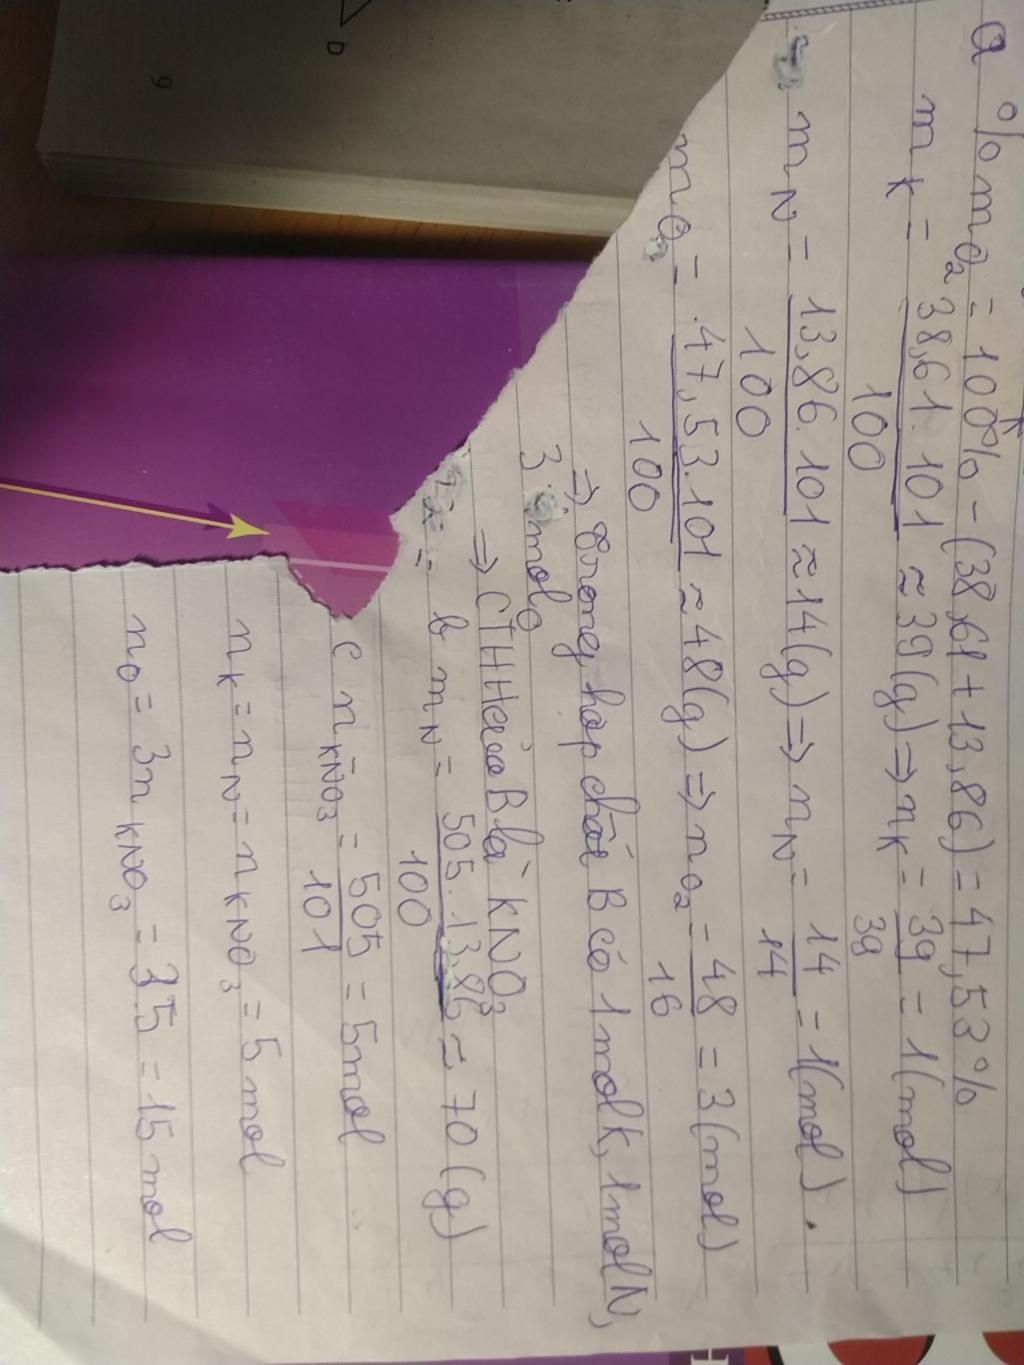 a %mO₂ = 100% - (38,61 + 13,86) = 47,53%
mK = 38,61.101/100 ≈ 39(g) ⇒ nK = 39/39 = 1(mol)
mN = 13,86.101/100 ≈ 14(g) ⇒ nN = 14/14 = 1(mol).
mO₂ = 47,53.101/100 ≈ 48(g) ⇒ nO₂ = 48/16 = 3(mol)
⇒ trong hợp chất B có 1 mol K, 1 mol N,
3 mol O
⇒ CTHH của B là KNO₃
b mN = 505.13,86/100 ≈ 70(g)
c nKNO₃ = 505/101 = 5 mol
nK = nN = nKNO₃ = 5 mol
nO = 3nKNO₃ = 3.5 = 15 mol
D
9